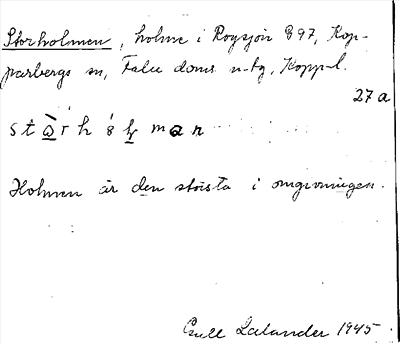 Storholmen, holme i Rogsjön 897, Kop-
parbergs sn, Falu doms. n. tg, Kopp. l.
27 a
Holmen är den största i omgivningen.
Lalander 1945